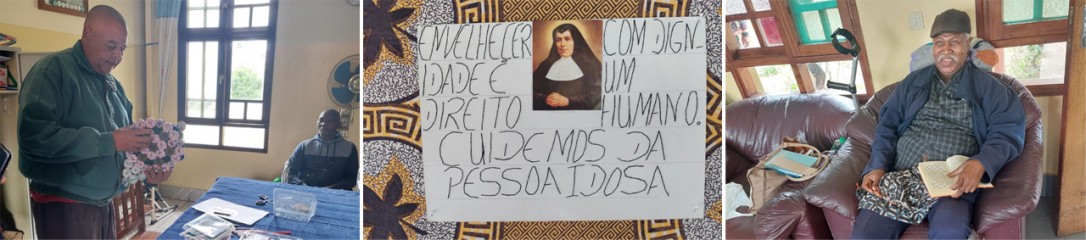 ENVELHECER COM DIGN-
IDADE É UM
DIREITO HUMANO.
CUIDEMOS DA
PESSOA IDOSA